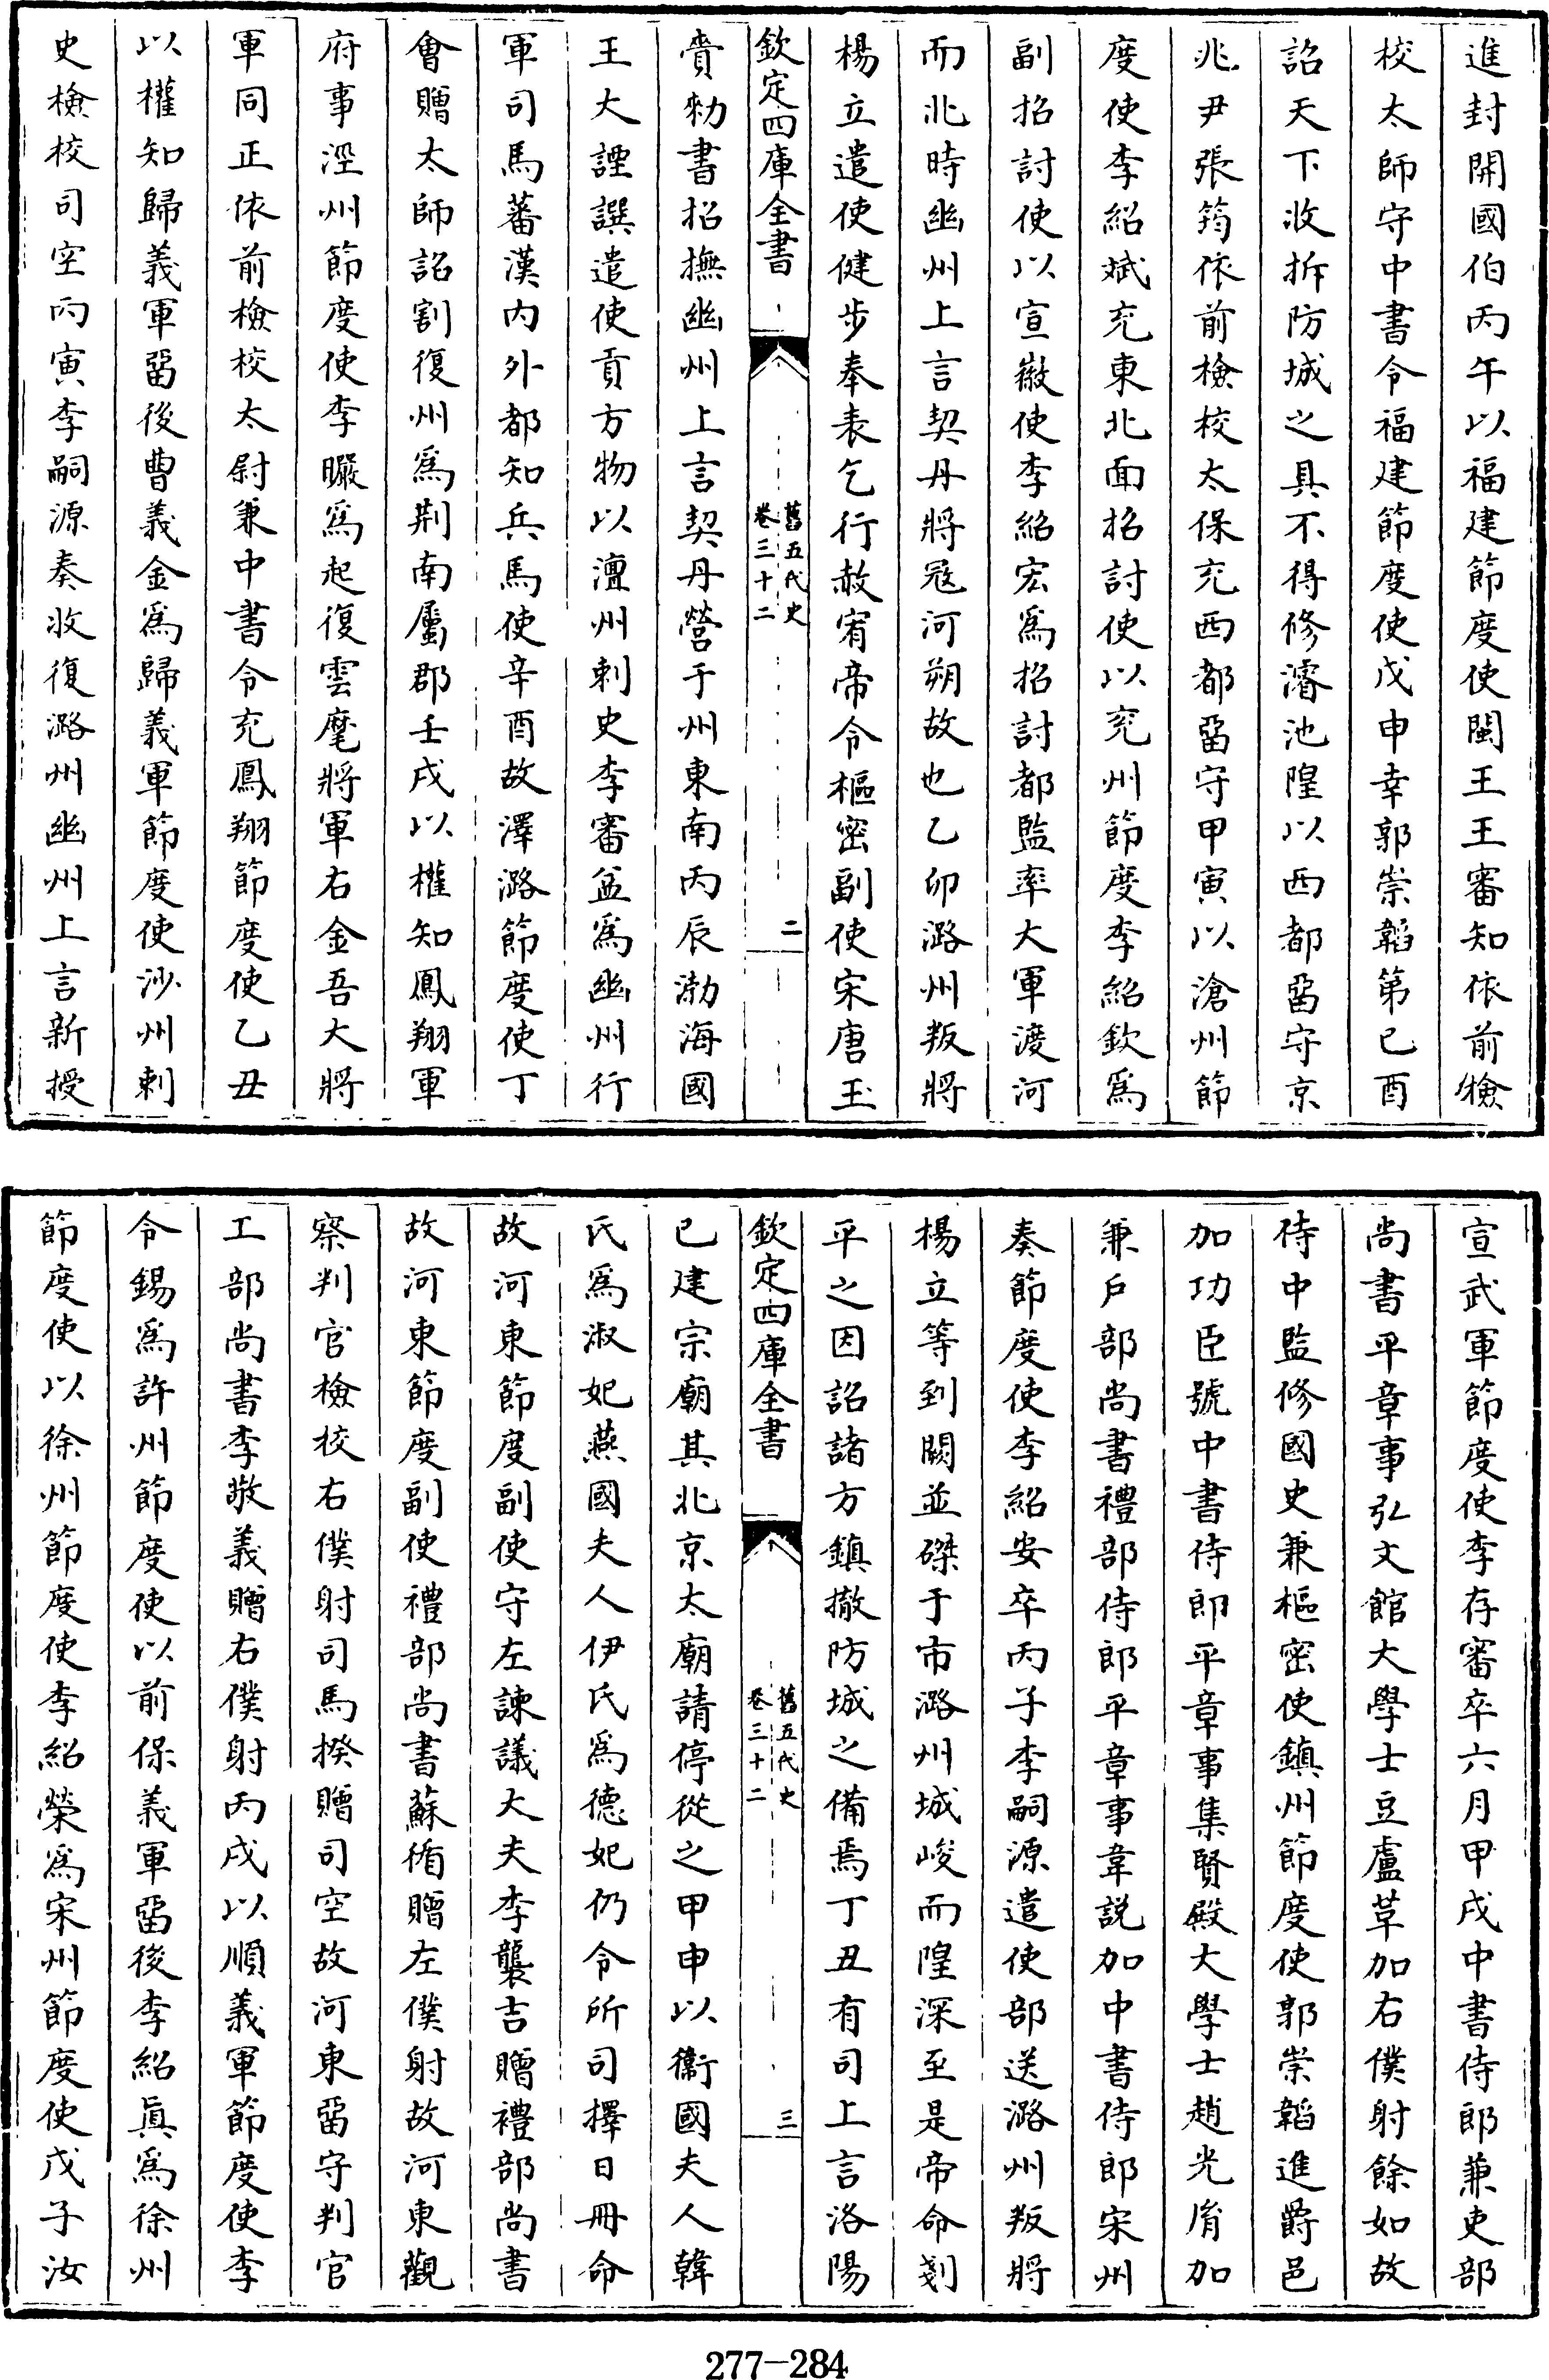 進封開國伯丙午以福建節度使閩王王審知依前檢
校太師守中書令福建節度使戊申幸郭崇韜第已酉
詔天下收拆防城之具不得修濬池隍以西都畱守京
兆尹張筠依前檢校太保充西都畱守甲寅以滄州節
度使李紹斌充東北面招討使以兖州節度李紹欽爲
副招討使以宣徽使李紹宏爲招討都監率大軍渡河
而北時幽州上言契丹將冦河朔故也乙卯潞州叛將
楊立遣使健步奉表乞行赦宥帝令樞密副使宋唐玉
欽定四庫全書
舊五代史
卷三十二
二
賫勑書招撫幽州上言契丹營于州東南丙辰渤海國
王大諲譔遣使貢方物以澶州刺史李審益爲幽州行
軍司馬蕃漢内外都知兵馬使辛酉故澤潞節度使丁
會贈太師詔割復州爲荆南屬郡壬戌以權知鳳翔軍
府事涇州節度使李曮爲起復雲麾將軍右金吾大將
軍同正依前檢校太尉兼中書令充鳳翔節度使乙丑
以權知歸義軍畱後曹義金爲歸義軍節度使沙州刺
史檢校司空丙寅李嗣源奏收復潞州幽州上言新授
宣武軍節度使李存審卒六月甲戌中書侍郎兼吏部
尚書平章事弘文館大學士豆盧革加右僕射餘如故
侍中監修國史兼樞密使鎮州節度使郭崇韜進爵邑
加功臣號中書侍郎平章事集賢殿大學士趙光㣧加
兼戸部尚書禮部侍郎平章事韋説加中書侍郎宋州
奏節度使李紹安卒丙子李嗣源遣使部送潞州叛將
楊立等到闕並磔于市潞州城峻而隍深至是帝命剗
平之因詔諸方鎮撤防城之備焉丁丑有司上言洛陽
欽定四庫全書
舊五代史
卷三十二
三
已建宗廟其北京太廟請停從之甲申以衞國夫人韓
氏爲淑妃燕國夫人伊氏爲德妃仍令所司擇日冊命
故河東節度副使守左諫議大夫李襲吉贈禮部尚書
故河東節度副使禮部尚書蘇循贈左僕射故河東觀
察判官檢校右僕射司馬揆贈司空故河東畱守判官
工部尚書李敬義贈右僕射丙戌以順義軍節度使李
令錫爲許州節度使以前保義軍畱後李紹眞爲徐州
節度使以徐州節度使李紹榮爲宋州節度使戊子汝
277-284